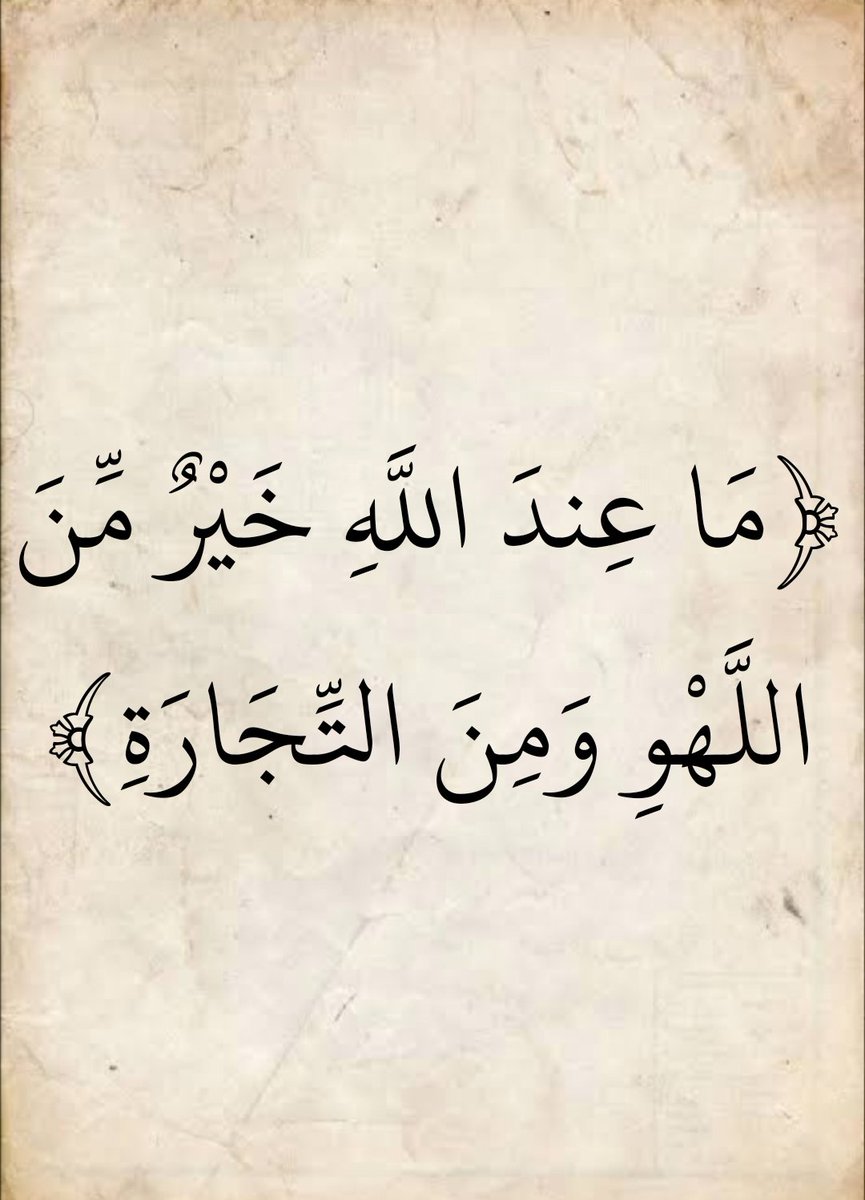 ﴿مَا عِندَ اللَّهِ خَيْرٌ مِّنَ
اللَّهْوِ وَمِنَ التِّجَارَةِ﴾